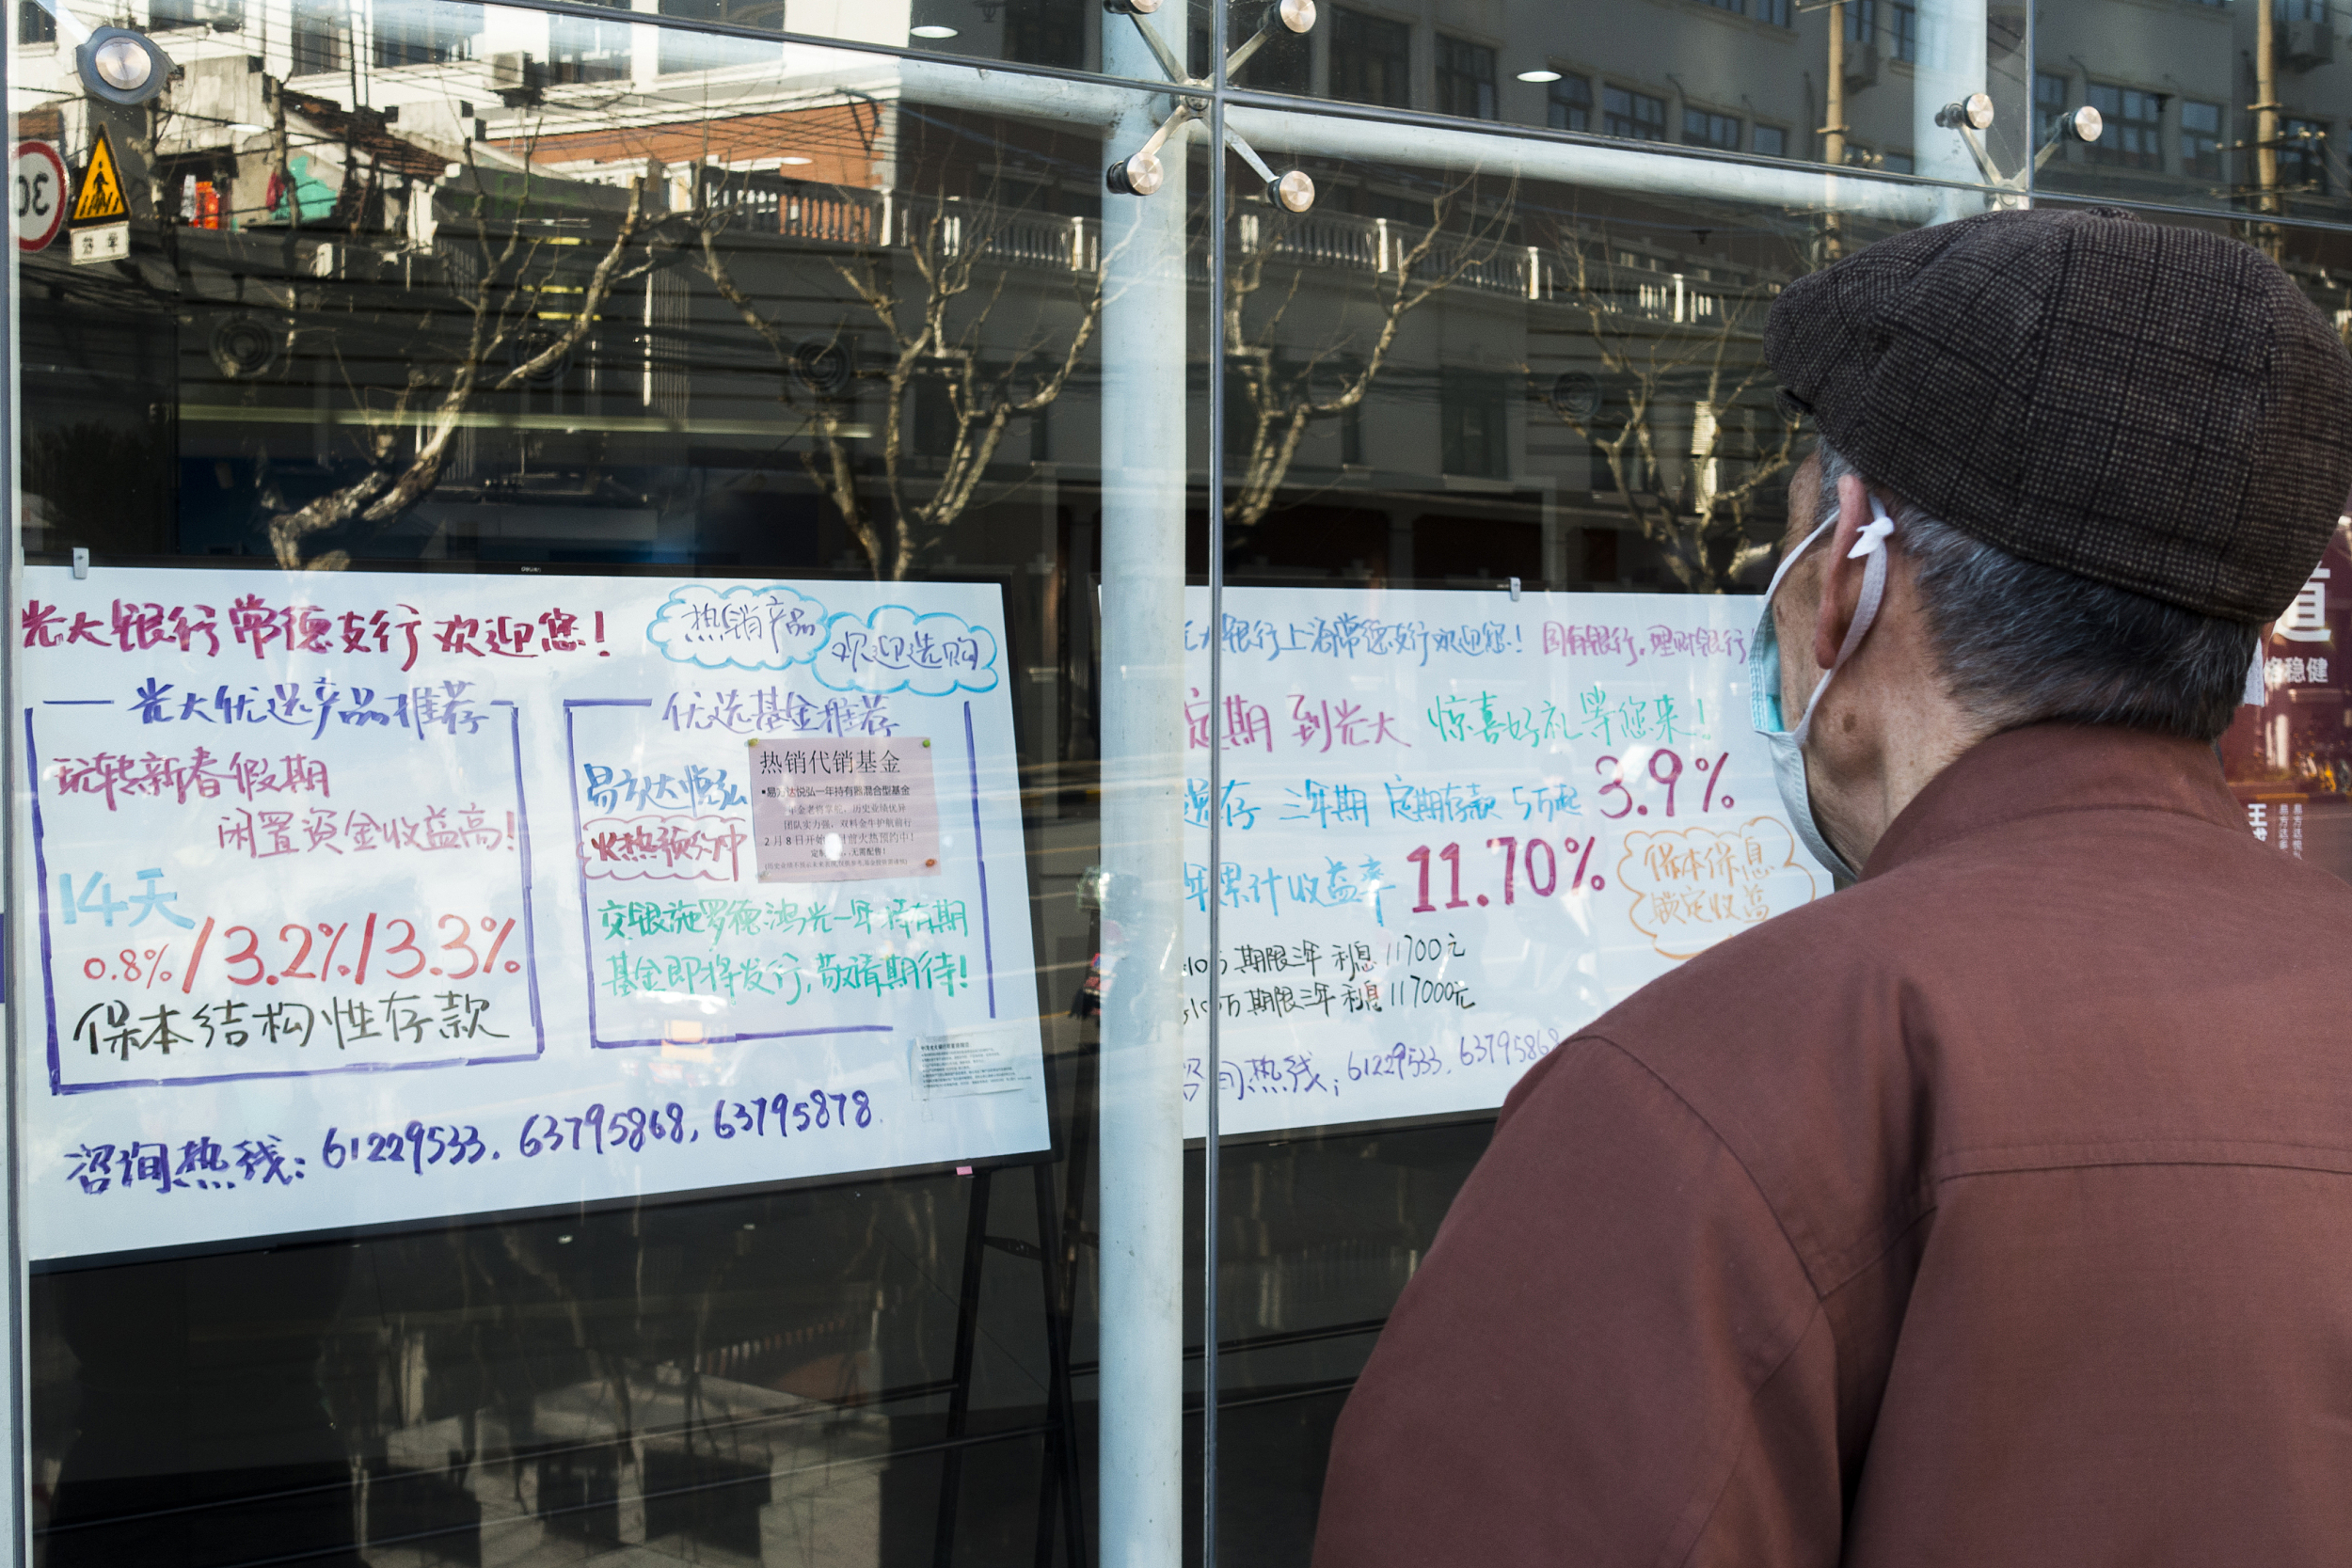 光大银行常德支行欢迎您!
热销产品
欢迎选购
光大优选产品推荐
玩转新春假期
闲置资金收益高!
14天
0.8%/3.2%/3.3%
保本结构性存款
优选基金推荐
易方达悦弘
火热预约中
热销代销基金
•易方达悦弘一年持有期混合型基金
历史业绩优异
团队实力强,双料金牛护航前行
2月8日开始
火热预约中!
无需配售!
交银施罗德鸿光一年持有期
基金即将发行,敬请期待!
咨询热线: 61229533. 63795868, 63795878.
大银行上海常德支行欢迎您! 国有银行.理财银行
定期 到光大 惊喜好礼等您来!
存 三年期 定期存款 5万起 3.9%
年累计收益率 11.70%
保本保息
锁定收益
10万 期限三年 利息 11700元
期限三年 利息 117000元
询热线; 61229533. 63795868
30
道
稳健